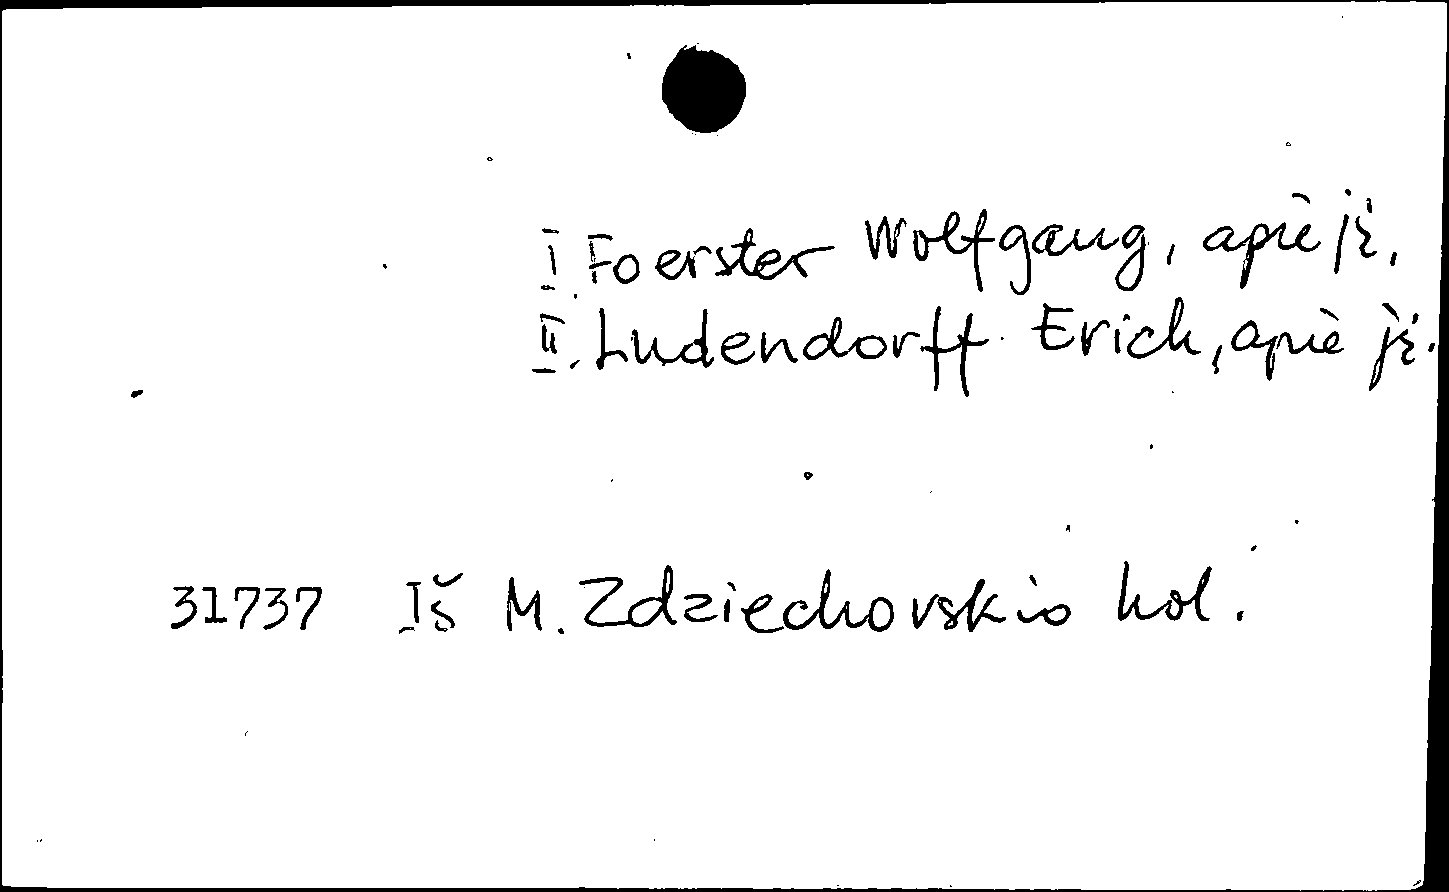 I. Foerster Wolfgang, apie jį.
II. Ludendorff Erich, apie jį.
31737 Iš M. Zdziechovskio kol.